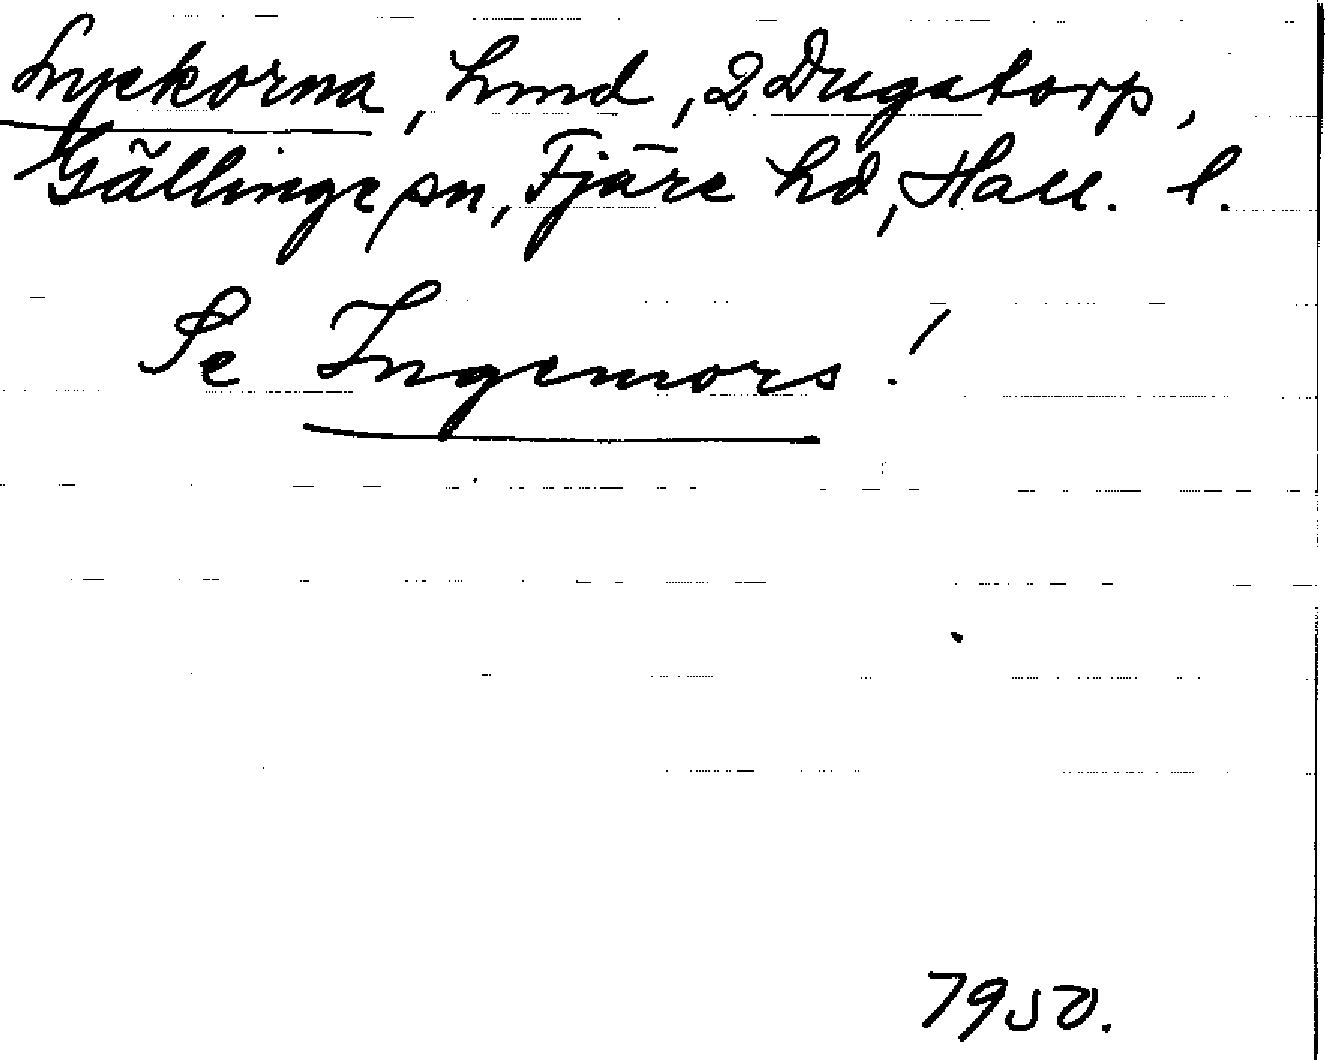 Lyckorna, hmd, 2 Dugatorp,
Gällinge sn, Fjäre hd, Hall. l.
Se Ingemors!
7950.